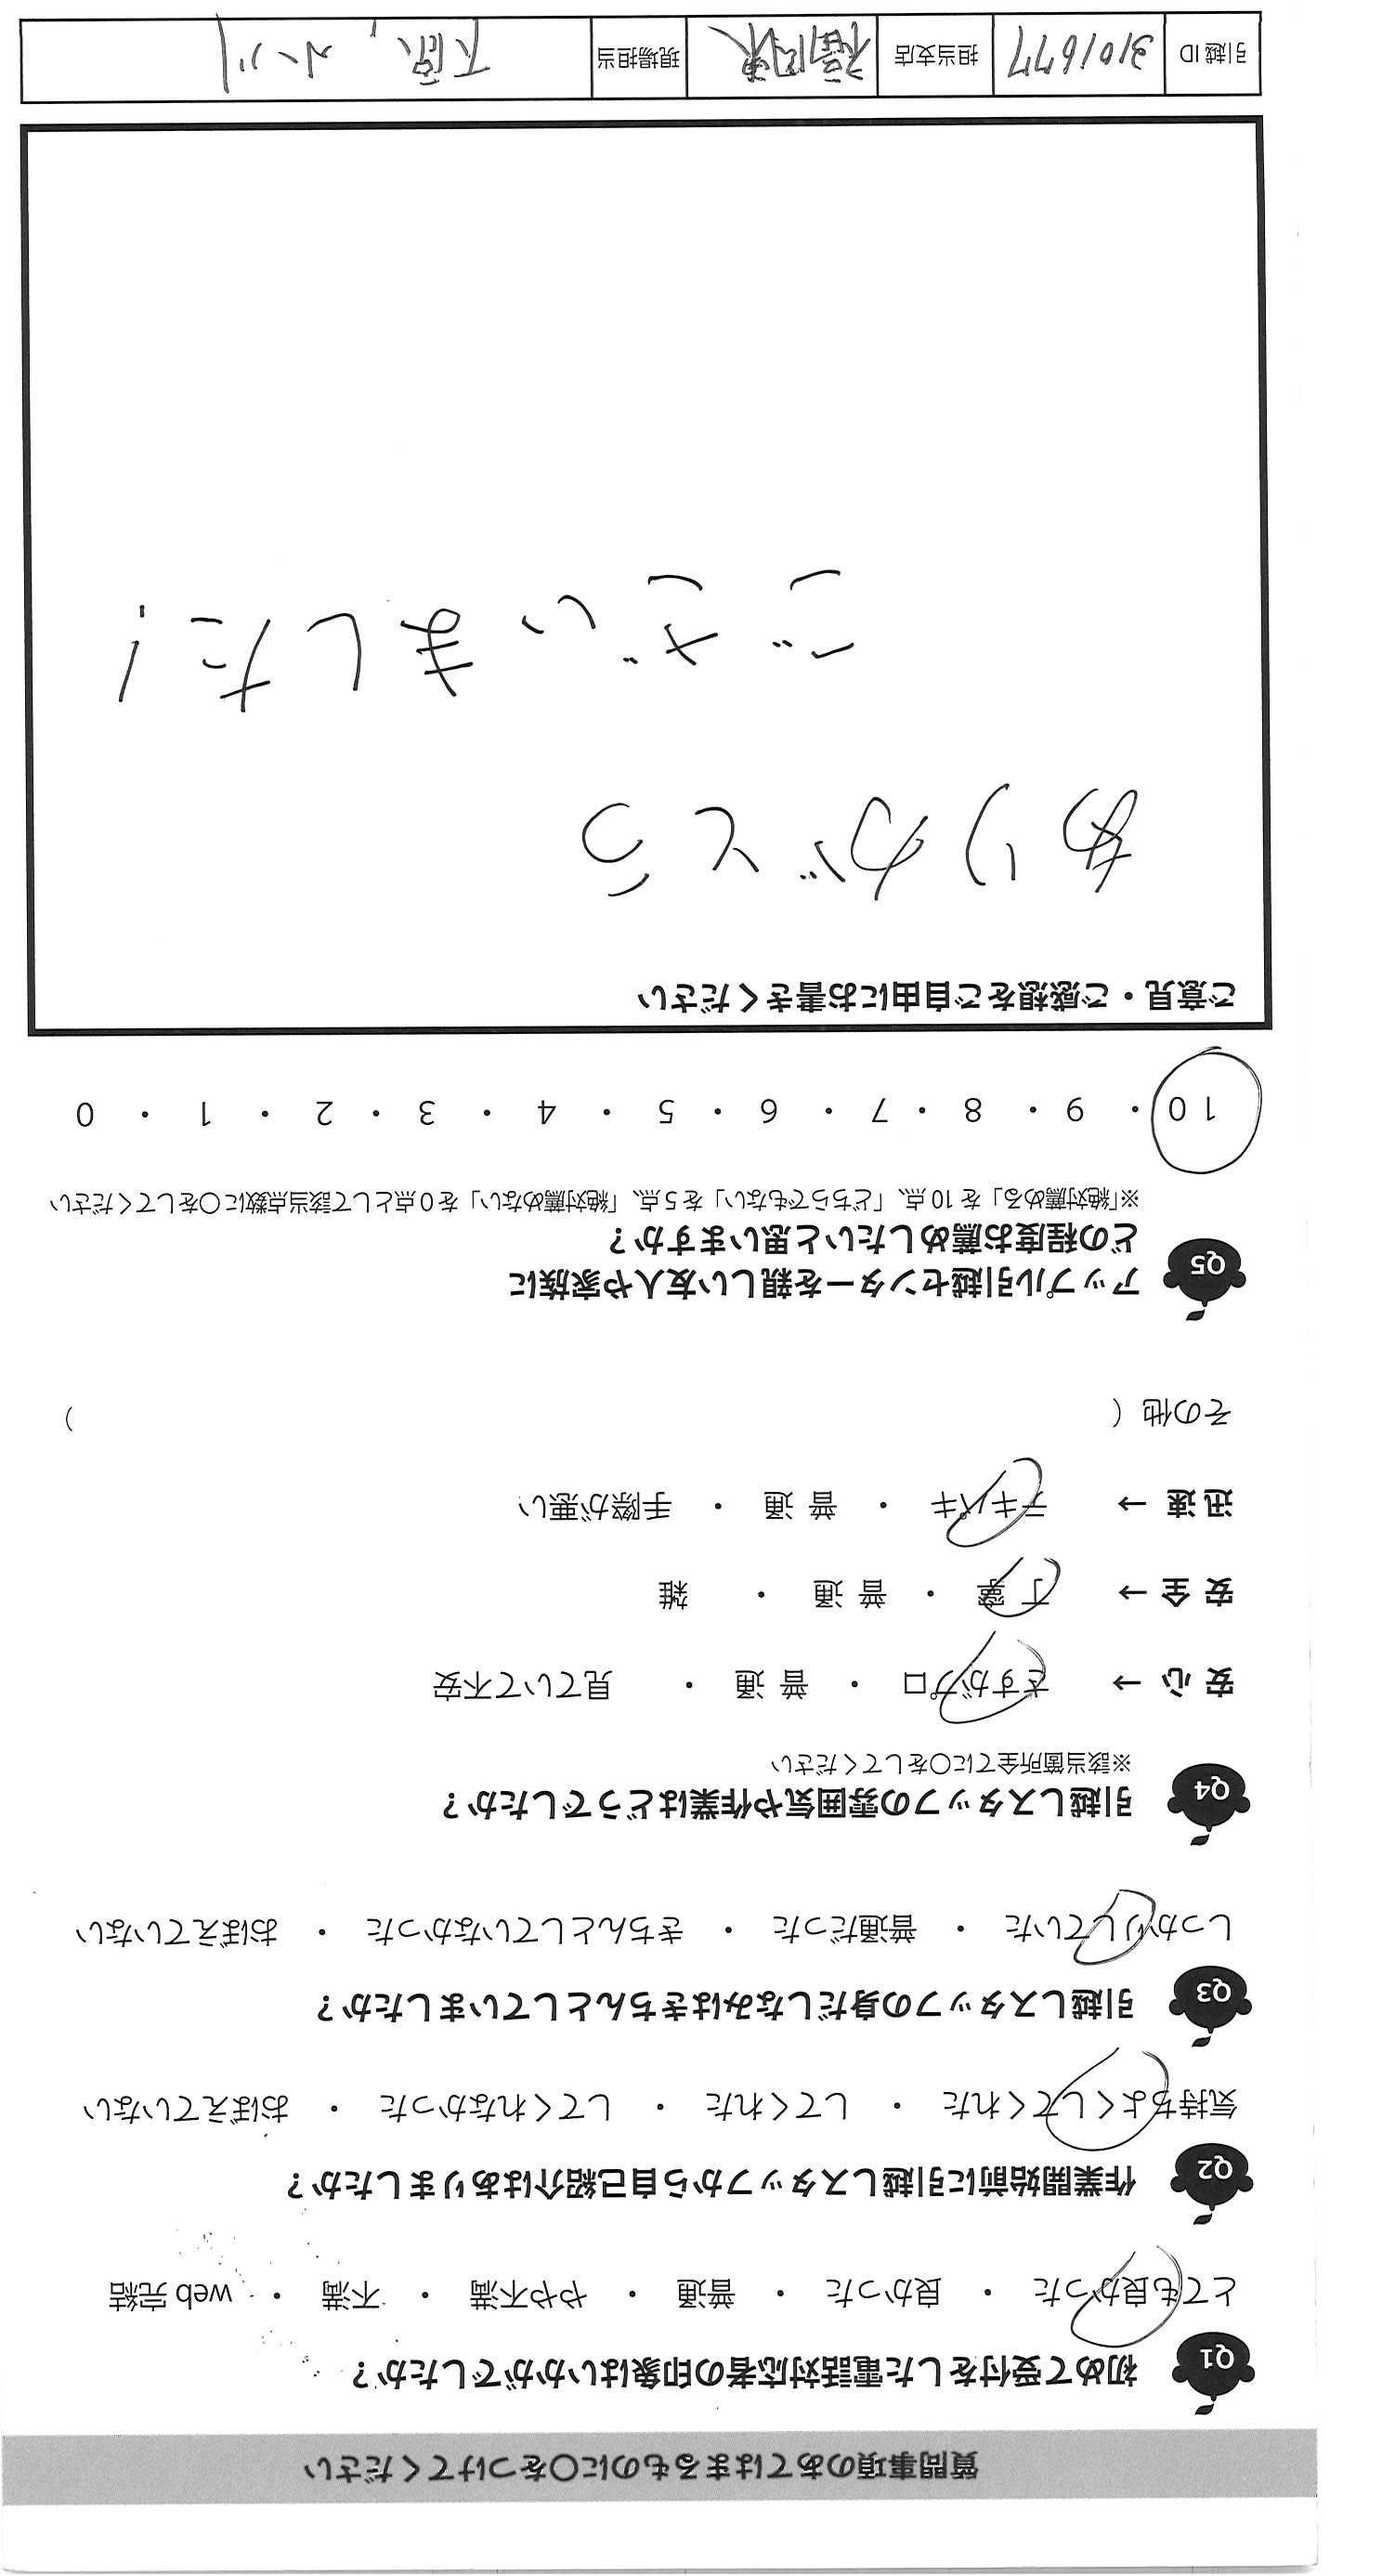 質問事項のあてはまるものに○をつけてください
Q1 初めて受付をした電話対応者の印象はいかがでしたか？
とても良かった ・ 良かった ・ 普通 ・ やや不満 ・ 不満 ・ web 完結
Q2 作業開始前に引越しスタッフから自己紹介はありましたか？
気持ちよくしてくれた ・ してくれた ・ してくれなかった ・ おぼえていない
Q3 引越しスタッフの身だしなみはきちんとしていましたか？
しっかりしていた ・ 普通だった ・ きちんとしていなかった ・ おぼえていない
Q4 引越しスタッフの雰囲気や作業はどうでしたか？
※該当箇所全てに○をしてください
安心 → さすがプロ ・ 普通 ・ 見ていて不安
安全 → 丁寧 ・ 普通 ・ 雑
迅速 → テキパキ ・ 普通 ・ 手際が悪い
その他（ ）
Q5 アップル引越センターを親しい友人や家族に
どの程度お薦めしたいと思いますか？
※「絶対薦める」を 10 点、「どちらでもない」を 5 点、「絶対薦めない」を 0 点として該当点数に○をしてください
10 ・ 9 ・ 8 ・ 7 ・ 6 ・ 5 ・ 4 ・ 3 ・ 2 ・ 1 ・ 0
ご意見・ご感想をご自由にお書きください
ありがとう
ございました！
引越 ID 3101677 担当支店 福岡東 現場担当 小川